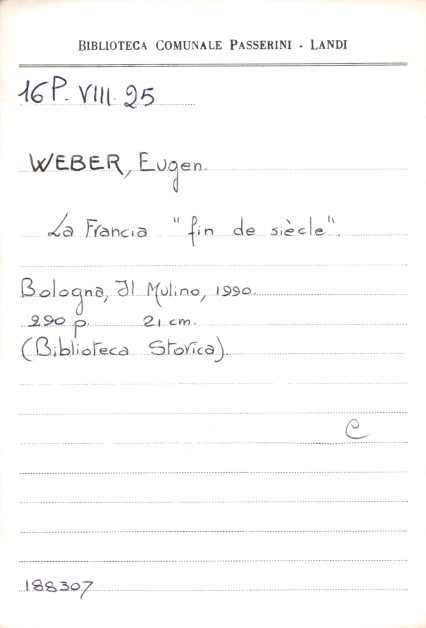 BIBLIOTECA COMUNALE PASSERINI - LANDI
16P. VIII. 25
WEBER, Eugen.
La Francia "fin de siècle".
Bologna, Il Mulino, 1990.
290 p. 21 cm.
(Biblioteca Storica).
C
188307